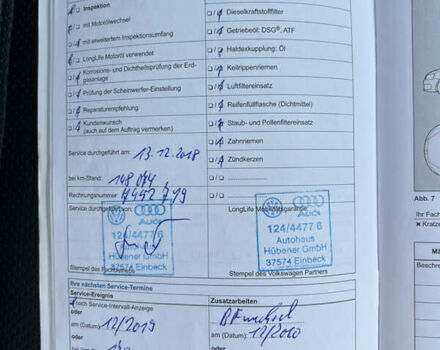 Inspektion
mit Motorölwechsel
mit erweitertem Inspektionsumfang
LongLife Motoröl verwendet
Korrosions- und Dichtheitsprüfung der Erd-
gasanlage
Prüfung der Scheinwerfer-Einstellung
Reparaturempfehlung
Kundenwunsch
(auch auf dem Auftrag vermerken)
Dieselkraftstofffilter
Getriebeöl: DSG®, ATF
Haldexkupplung: Öl
Keilrippenriemen
Luftfiltereinsatz
Reifenfüllflasche (Dichtmittel)
Staub- und Pollenfiltereinsatz
Zahnriemen
Zündkerzen
Service durchgeführt am: 13.12.2018
bei km-Stand:
Rechnungsnummer:
Service durchgeführt von:
Audi
124/4477 6
Autohaus
Hübener GmbH
37574 Einbeck
Stempel des Fachbetriebs
LongLife Mobilitätsgarantie:
Audi
124/4477 6
Autohaus
Hübener GmbH
37574 Einbeck
Stempel des Volkswagen Partners
Ihre nächsten Service-Termine
Service-Ereignis
nach Service-Intervall-Anzeige
oder
am (Datum) 12/2019
oder
Zusatzarbeiten
oder
am (Datum) 12/2020
oder
Abb. 7
Ihr Fach
Kratze
Bescheini